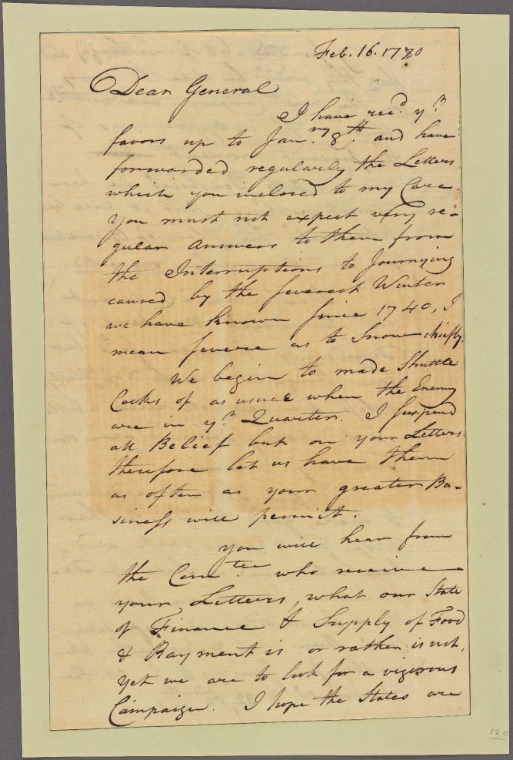 Feb. 16. 1780
Dear General
I have recd. yr.
favors up to Janry. 8th. and have
forwarded regularly the Letters
which you inclosed to my Care.
You must not expect very re-
gular Answers to them from
the Interruptions to Journying
caused by the severest Winter
we have known since 1740, I
mean severe as to Snow chiefly.
We begin to made Shuttle
Cocks of as usual when the Enemy
are in yr. Quarter. I suspend
all Belief but on your Letters
therefore let us have them
as often as your greater Bu-
siness will permit.
You will hear from
the Comtee who receive
your Letters, what our State
of Finance & Supply of Food
& Rayment is or rather is not.
Yet we are to look for a vigorous
Campaign. I hope the States are
120